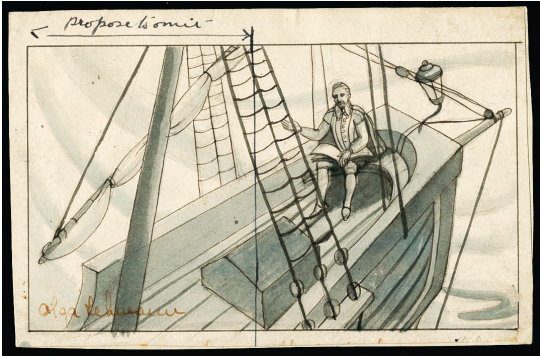 propose to omit
Olga Lehmann